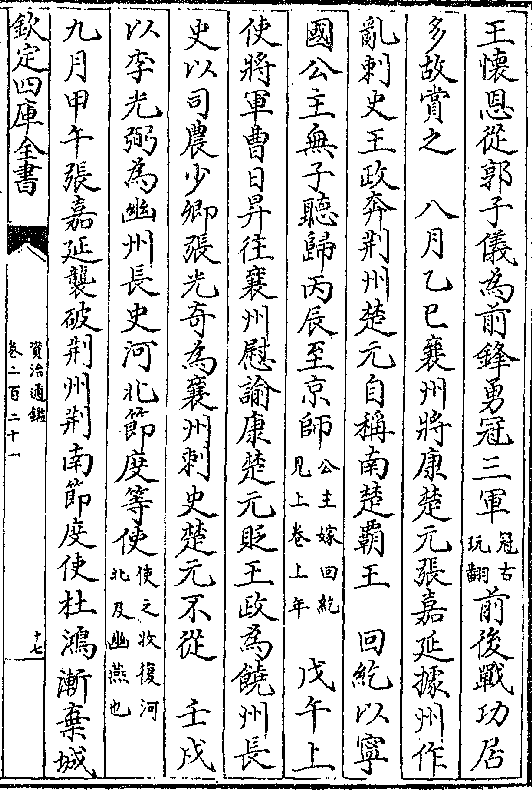 王懷恩從郭子儀為前鋒勇冠三軍冠古玩翻前後戰功居
多故賞之　八月乙巳襄州將康楚元張嘉延據州作
亂刺史王政奔荆州楚元自稱南楚霸王　回紇以寧
國公主無子聽歸丙辰至京師公主嫁回紇見上卷上年　戊午上
使將軍曹日昇往襄州慰諭康楚元貶王政為饒州長
史以司農少卿張光奇為襄州刺史楚元不從　壬戌
以李光弼為幽州長史河北節度等使使之收復河北及幽燕也
九月甲午張嘉延襲破荆州荆南節度使杜鴻漸棄城
欽定四庫全書
資治通鑑
卷二百二十一
十七